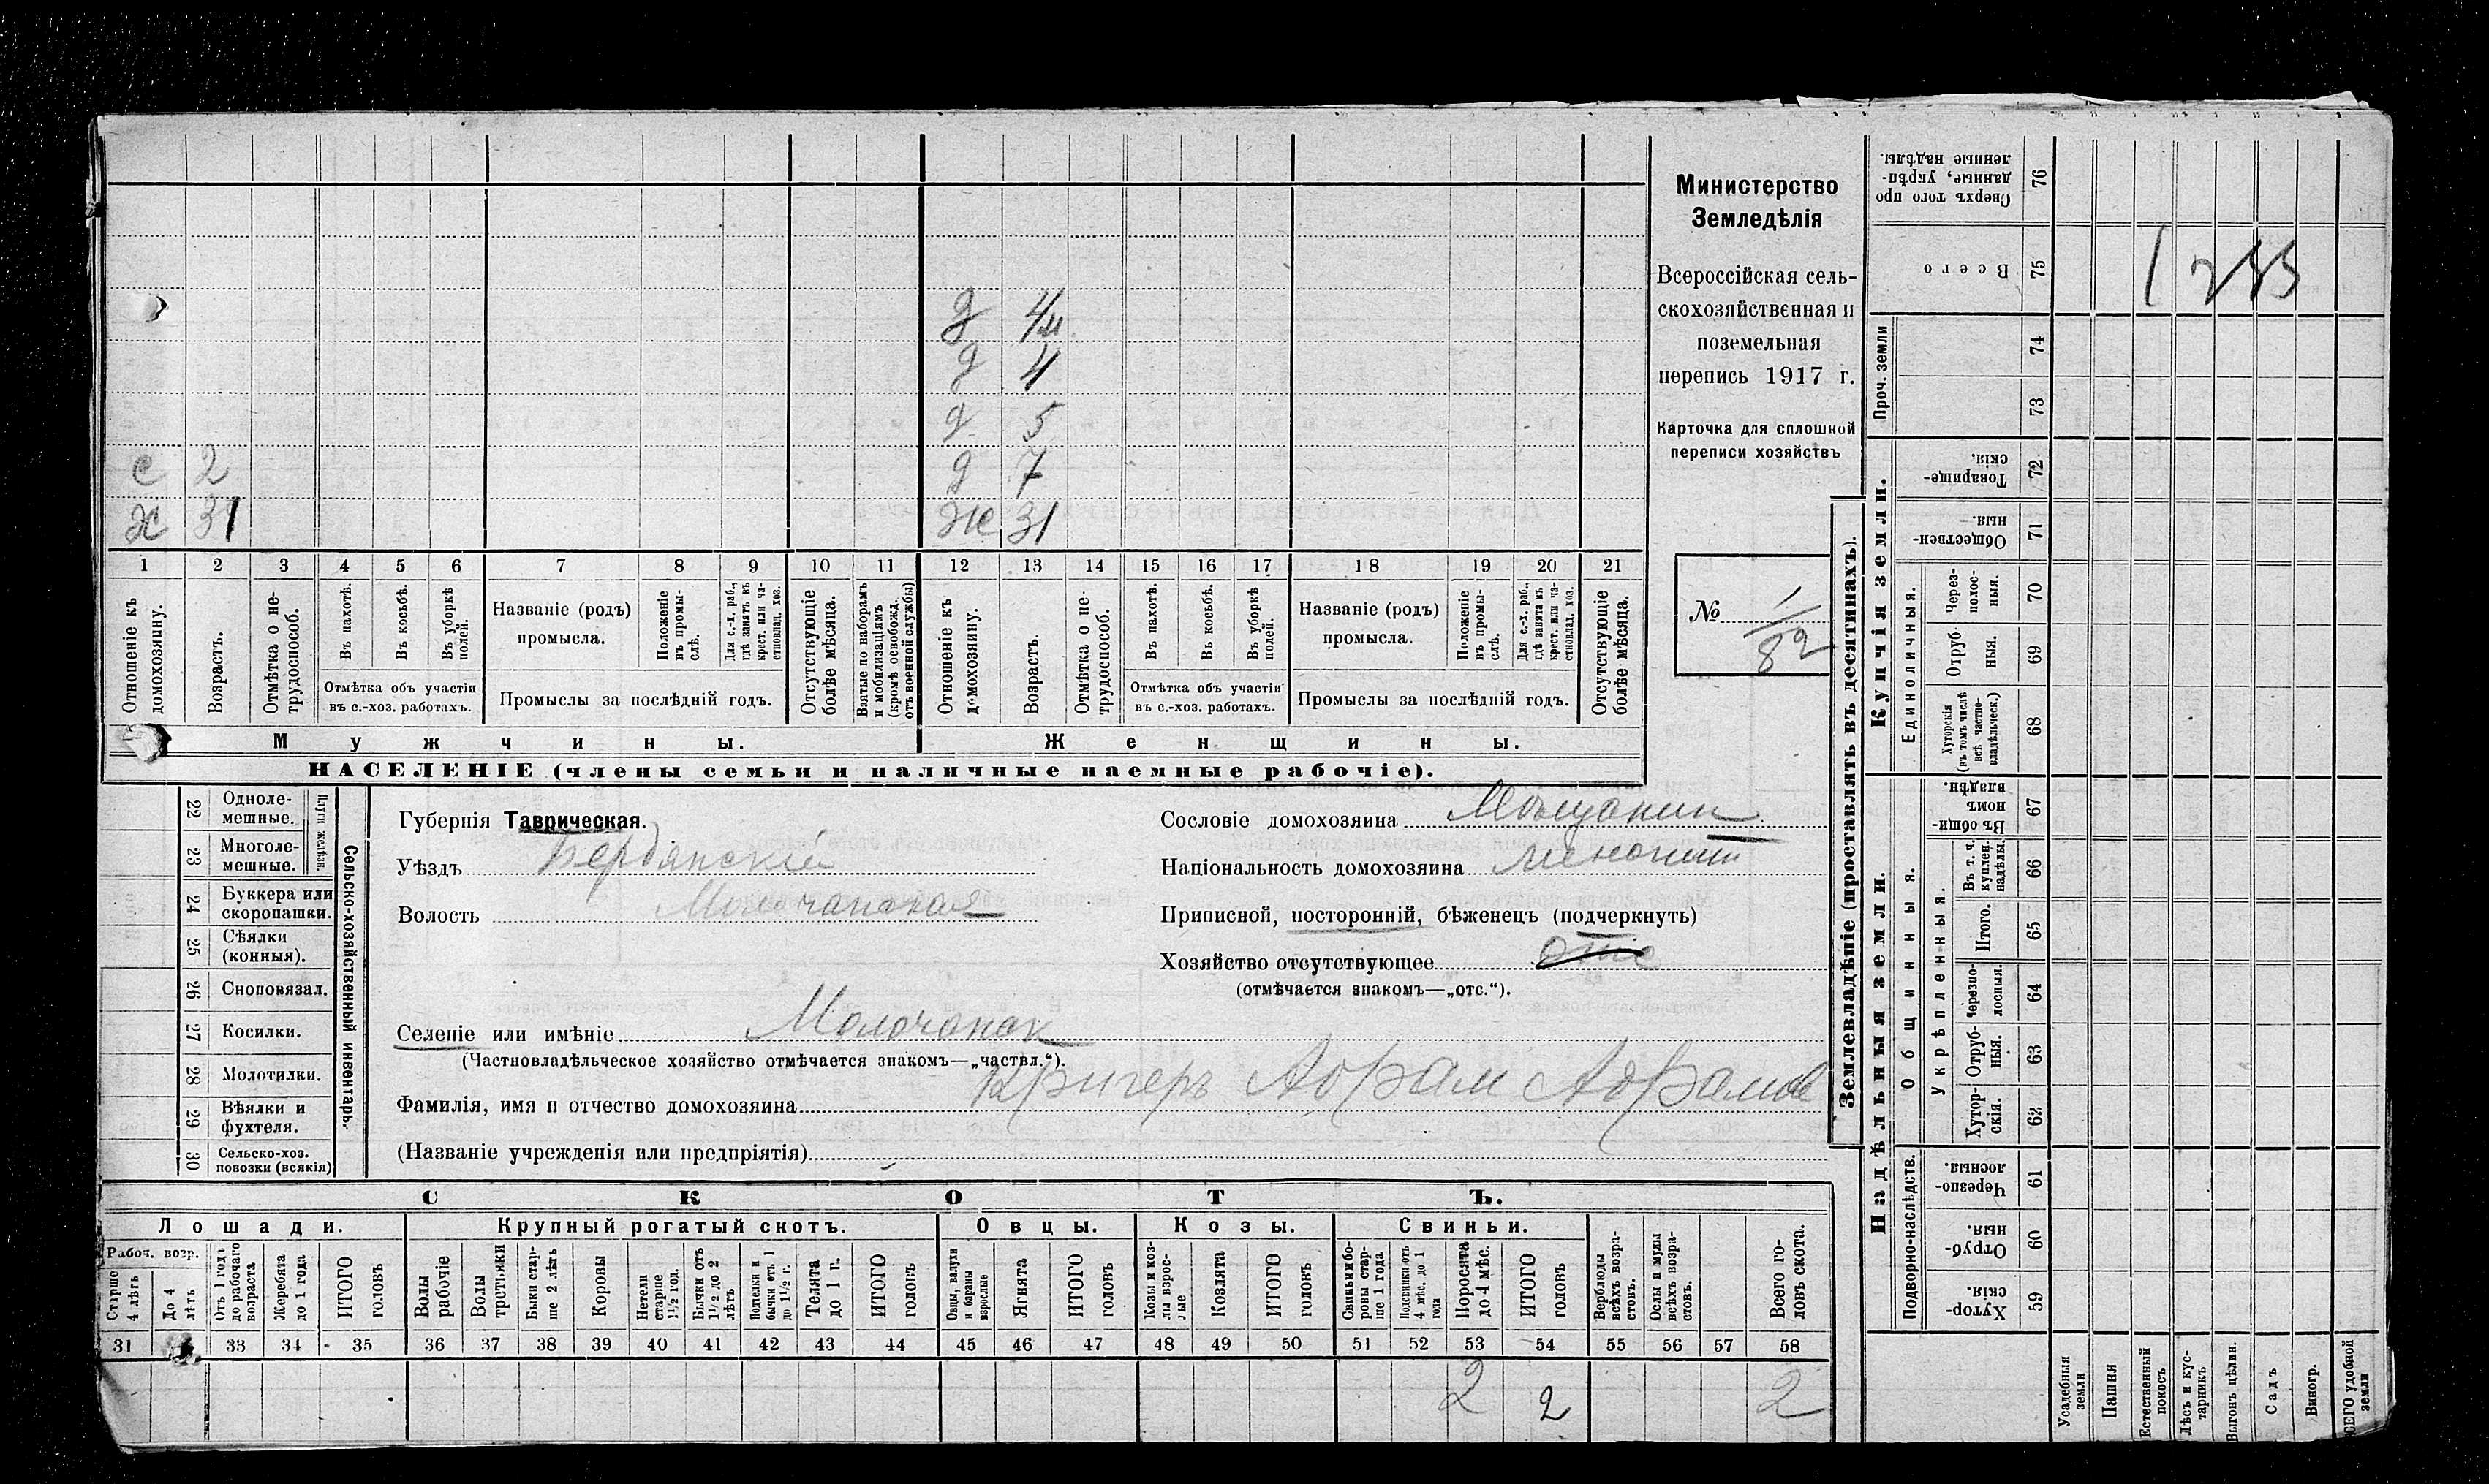 Министерство
Земледѣлія
Всероссійская сель-
скохозяйственная и
поземельная
перепись 1917 г.
Карточка для сплошной
переписи хозяйствъ
№ 1/82
д 4м
д 4
д 5
с 2 д 7
Х 31 Ж 31
1 2 3 4 5 6 7 8 9 10 11 12 13 14 15 16 17 18 19 20 21
Отношеніе къ домохозяину.
Возрастъ.
Отмѣтка о не-трудоспособ.
Въ пахотѣ.
Въ косьбѣ.
Въ уборкѣ полей.
Отмѣтка объ участіи
въ с.-хоз. работахъ.
Названіе (родъ)
промысла.
Положеніе въ промы-слѣ.
Для с.-х. раб., гдѣ занятъ въ крест. или ча-стновлад. хоз.
Промыслы за послѣдній годъ.
Отсутствующіе болѣе мѣсяца.
Взятые по наборамъ и мобилизаціямъ (кромѣ освобожд. отъ военной службы)
Отношеніе къ домохозяину.
Возрастъ.
Отмѣтка о не-трудоспособ.
Въ пахотѣ.
Въ косьбѣ.
Въ уборкѣ полей.
Отмѣтка объ участіи
въ с.-хоз. работахъ.
Названіе (родъ)
промысла.
Положеніе въ промы-слѣ.
Для с.-х. раб., гдѣ занята въ крест. или ча-стновлад. хоз.
Промыслы за послѣдній годъ.
Отсутствующіе болѣе мѣсяца.
Мужчины. Женщины.
НАСЕЛЕНІЕ (члены семьи и наличные наемные рабочіе).
22 Одноле-мешные.
23 Многоле-мешные.
Плуги желѣзн.
24 Буккера или скоропашки.
25 Сѣялки (конныя).
26 Сноповязал.
27 Косилки.
28 Молотилки.
29 Вѣялки и фухтеля.
30 Сельско-хоз. повозки (всякія)
Сельско-хозяйственный инвентарь.
Губернія Таврическая.
Уѣздъ Бердянскій
Волость Молочанская
Селеніе или имѣніе Молочанск
(Частновладѣльческое хозяйство отмѣчается знакомъ—„частвл.“).
Фамилія, имя и отчество домохозяина Кригеръ Абрам Абрамов
(Названіе учрежденія или предпріятія)
Сословіе домохозяина Мѣщанин
Національность домохозяина менонит
Приписной, посторонній, бѣженецъ (подчеркнуть)
Хозяйство отсутствующее отс
(отмѣчается знакомъ—„отс.“).
СКОТЪ.
Лошади. Крупный рогатый скотъ. Овцы. Козы. Свиньи.
Рабоч. возр.
Старше 4 лѣтъ
До 4 лѣтъ
Отъ 1 года до рабочаго возраста
Жеребята до 1 года
ИТОГО головъ
Волы рабочіе
Волы третьяки
Быки стар-ше 2 лѣтъ
Коровы
Нетели старше 1½ год.
Бычки отъ 1½ до 2 лѣтъ
Подтелки и бычки отъ 1 до 1½ г.
Телята до 1 г.
ИТОГО головъ
Овцы, валухи и бараны взрослые
Ягнята
ИТОГО головъ
Козы и коз-лы взрос-лые
Козлята
ИТОГО головъ
Свиньи и бо-ровы стар-ше 1 года
Подсвинки отъ 4 мѣс. до 1 года
Поросята до 4 мѣс.
ИТОГО головъ
Верблюды всѣхъ возра-стовъ.
Ослы и мулы всѣхъ возра-стовъ.
Всего го-ловъ скота.
31 33 34 35 36 37 38 39 40 41 42 43 44 45 46 47 48 49 50 51 52 53 54 55 56 57 58
2 2 2
Землевладѣніе (проставлять въ десятинахъ).
Надѣльныя земли. Купчія земли. Проч. земли
Подворно-наслѣдств.
Общинныя.
Укрѣпленныя.
Единоличныя.
Сверхъ того про-данные, укрѣп-ленные надѣлы. 76
Всего 75
74
73
Товарище-скія. 72
Обществен-ныя. 71
Через-полос-ныя. 70
Отруб-ныя. 69
Хуторскія (въ томъ числѣ всѣ частно-владѣльческ.) 68
Въ общин-номъ владѣн. 67
Въ т. ч. куплен. надѣлы. 66
Итого. 65
Черезпо-лосныя. 64
Отруб-ныя. 63
Хутор-скія. 62
Черезпо-лосныя. 61
Отруб-ныя. 60
Хутор-скія. 59
Усадебныя земли
Пашня
Естественный покосъ
Лѣсъ и кус-тарникъ
Выгонъ цѣлин.
Садъ
Виногр.
ВСЕГО удобной земли